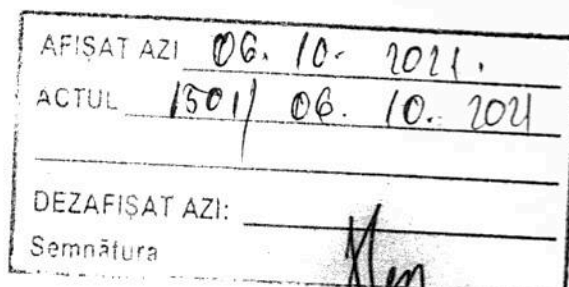 AFIȘAT AZI 06. 10. 2021.
ACTUL 1501/ 06. 10. 2021
DEZAFIȘAT AZI:
Semnătura